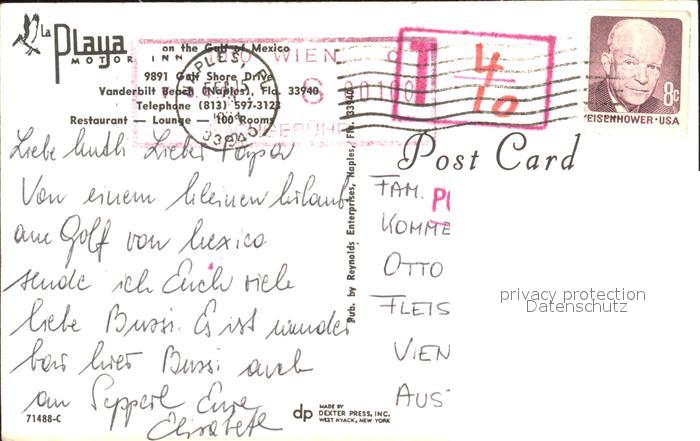 La Playa
MOTOR INN
on the Gulf of Mexico
9891 Gulf Shore Drive
Vanderbilt Beach (Naples), Fla. 33940
Telephone (813) 597-3123
Restaurant — Lounge — 100 Rooms
WIEN
NAPLES,
T 4/10
8c
EISENHOWER·USA
Post Card
Pub. by Reynolds Enterprises, Naples, Fla. 33940
Liebe Mutti Lieber
Von einem kleinen Urlaub
am Golf von Mexico
sende ich Euch viele
liebe Bussi. Es ist wunder
bar hier Bussi auch
an Pepperl Eure
Elisabeth
FAM.
KOMME
OTTO
FLEIS
VIEN
AUS
privacy protection
Datenschutz
71488-C
dp
MADE BY
DEXTER PRESS, INC.
WEST NYACK, NEW YORK